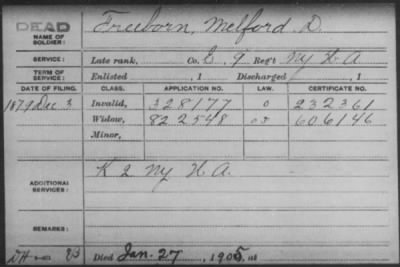 DEAD Freeborn, Melford D.
NAME OF SOLDIER:
SERVICE: Late rank, Co. E, 9 Reg't NY H A
TERM OF SERVICE: Enlisted , 1 Discharged , 1
DATE OF FILING. CLASS. APPLICATION NO. LAW. CERTIFICATE NO.
1879 Dec 3 Invalid, 328177 0 232361
Widow, 822548 606146
Minor,
ADDITIONAL SERVICES: K 2 NY H A.
REMARKS:
Died Jan. 27, 1905, at